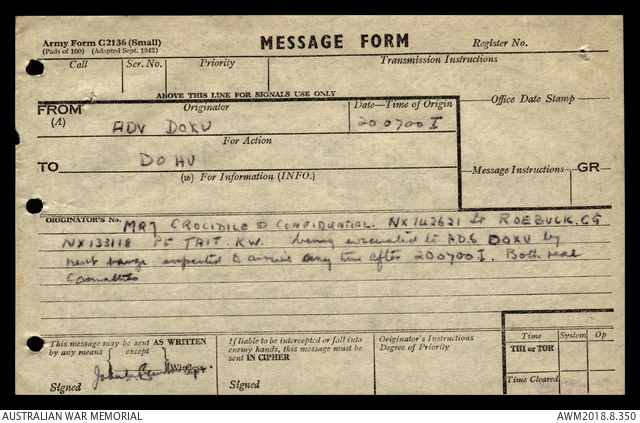 Army Form C2136 (Small)
(Pads of 100) (Adapted Sept. 1942)
MESSAGE FORM
Register No.
Call
Ser. No.
Priority
Transmission Instructions
ABOVE THIS LINE FOR SIGNALS USE ONLY
FROM
(A)
Originator
ADV DOKU
Date—Time of Origin
200700 I
Office Date Stamp
For Action
TO
DOHU
(W) For Information (INFO.)
Message Instructions
GR
ORIGINATOR'S No.
CONFIDENTIAL. NX142621 Lt ROEBUCK. CG
NX133118 TAIT. KW. being evacuated to ADS DOKU by
next barge expected to arrive any time after 200700 I. Both real
Casualties
This message may be sent AS WRITTEN
by any means except
Wireless
Signed
If liable to be intercepted or fall into
enemy hands, this message must be
sent IN CIPHER
Signed
Originator's Instructions
Degree of Priority
Time
System
Op
THI or TOR
Time Cleared
AUSTRALIAN WAR MEMORIAL
AWM2018.8.350